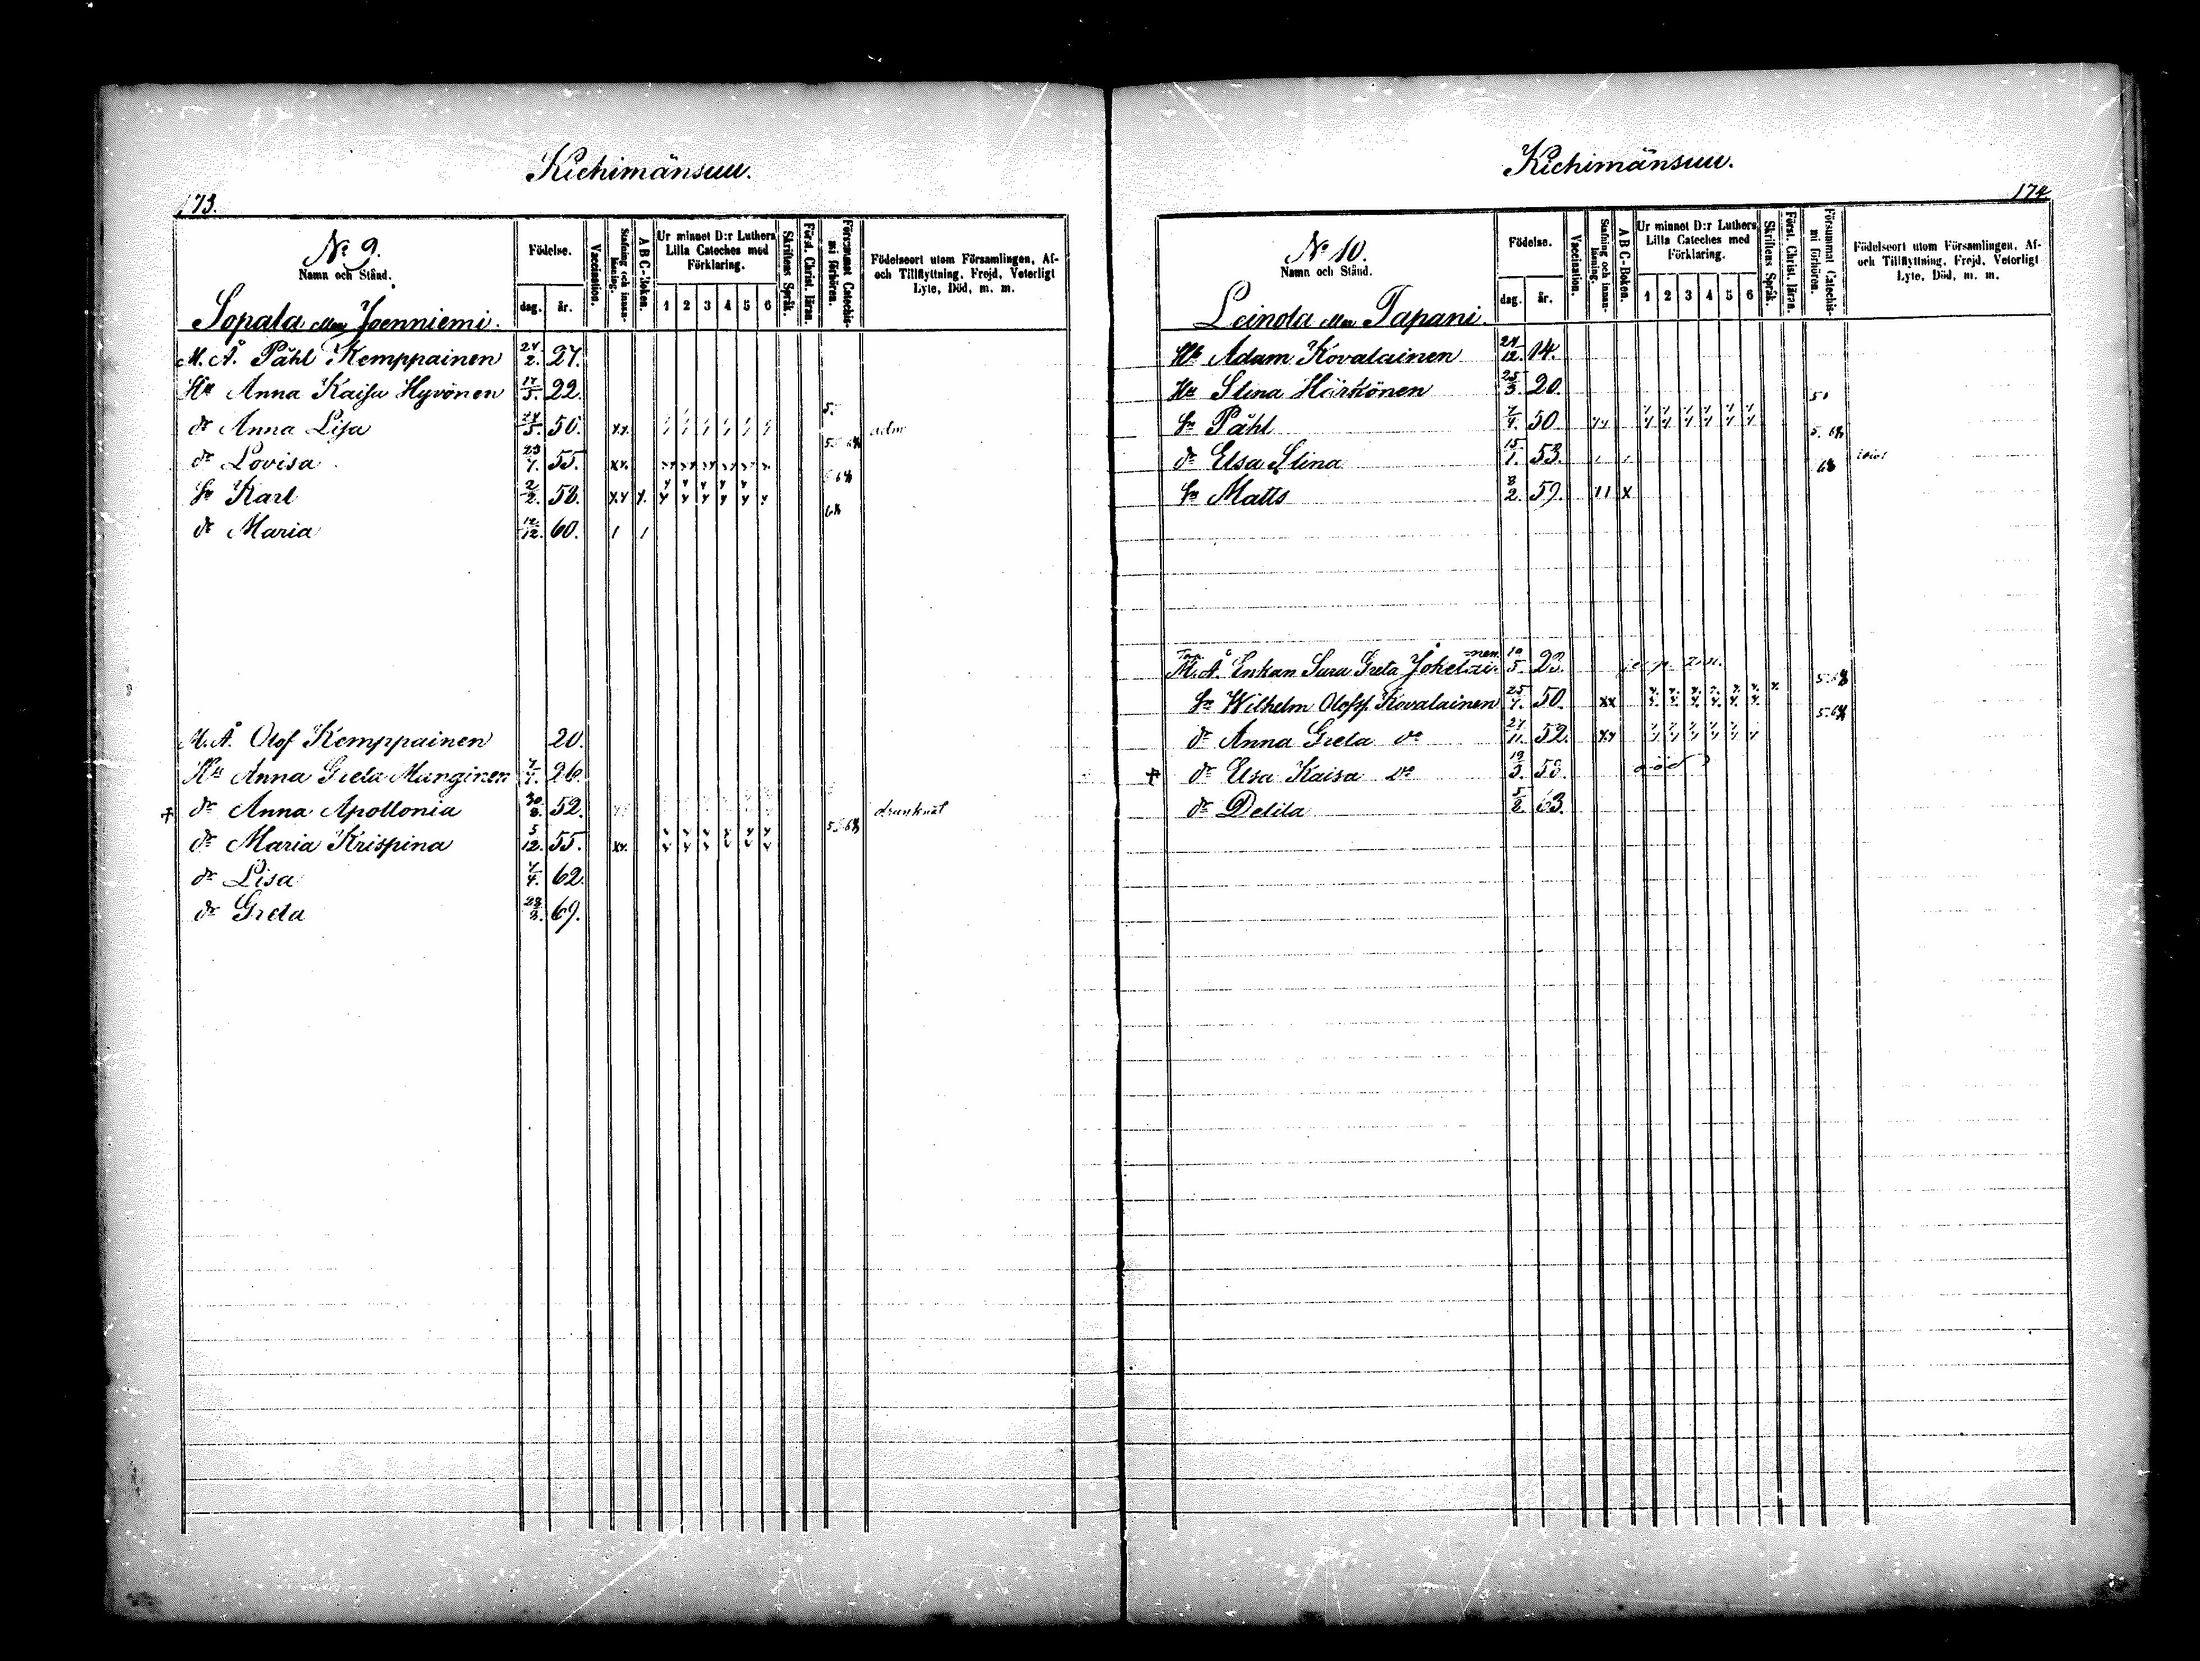 Kichimänsuu.
173.
No 9.
Namn och Stånd.
Födelse.
dag.
år.
Vaccination.
Stafning och innan-läsning.
A B C-Boken.
Ur minnet D:r Luthers Lilla Cateches med Förklaring.
1 2 3 4 5 6
Skriftens Språk.
Först. Christ. läran.
Försummat Catechis-mi förhören.
Födelseort utom Församlingen, Af-
och Tillflyttning, Frejd, Veterligt
Lyte, Död, m. m.
Sopala eller Joenniemi.
M. Å. Påhl Kemppainen 24/2. 27.
Hu Anna Kaisa Hyvönen 17/5. 22.
dr Anna Lisa 24/5. 50. xx
dr Lovisa 23/7. 55. xx
Sn Karl 2/2. 58. xx x
dr Maria 12/12. 60. / /
M. Å. Olof Kemppainen 20.
Hu Anna Greta Manginen 7/7. 26.
+ dr Anna Apollonia 30/8. 52. drunknat
dr Maria Krispina 5/12. 55. xx
dr Lisa 7/4. 62.
dr Greta 28/3. 69.
Kichimänsuu.
174.
No 10.
Namn och Stånd.
Födelse.
dag.
år.
Vaccination.
Stafning och innan-läsning.
A B C-Boken.
Ur minnet D:r Luthers Lilla Cateches med Förklaring.
1 2 3 4 5 6
Skriftens Språk.
Först. Christ. läran.
Försummat Catechis-mi förhören.
Födelseort utom Församlingen, Af-
och Tillflyttning, Frejd, Veterligt
Lyte, Död, m. m.
Leinola eller Tapani.
Hb Adam Kovalainen 24/12. 14.
Hu Stina Härkönen 25/3. 20.
Sn Påhl 7/7. 50.
dr Elsa Stina 15/1. 53.
Sn Matts 8/2. 59. x
M. Å. Enkan Sara Greta Jokelai-nen 10/5. 23.
Sn Wilhelm Olofss. Kovalainen 25/7. 50. xx
dr Anna Greta do 27/11. 52. xx
+ dr Elsa Kaisa do 19/3. 58. död
dr Delila 5/8 63.